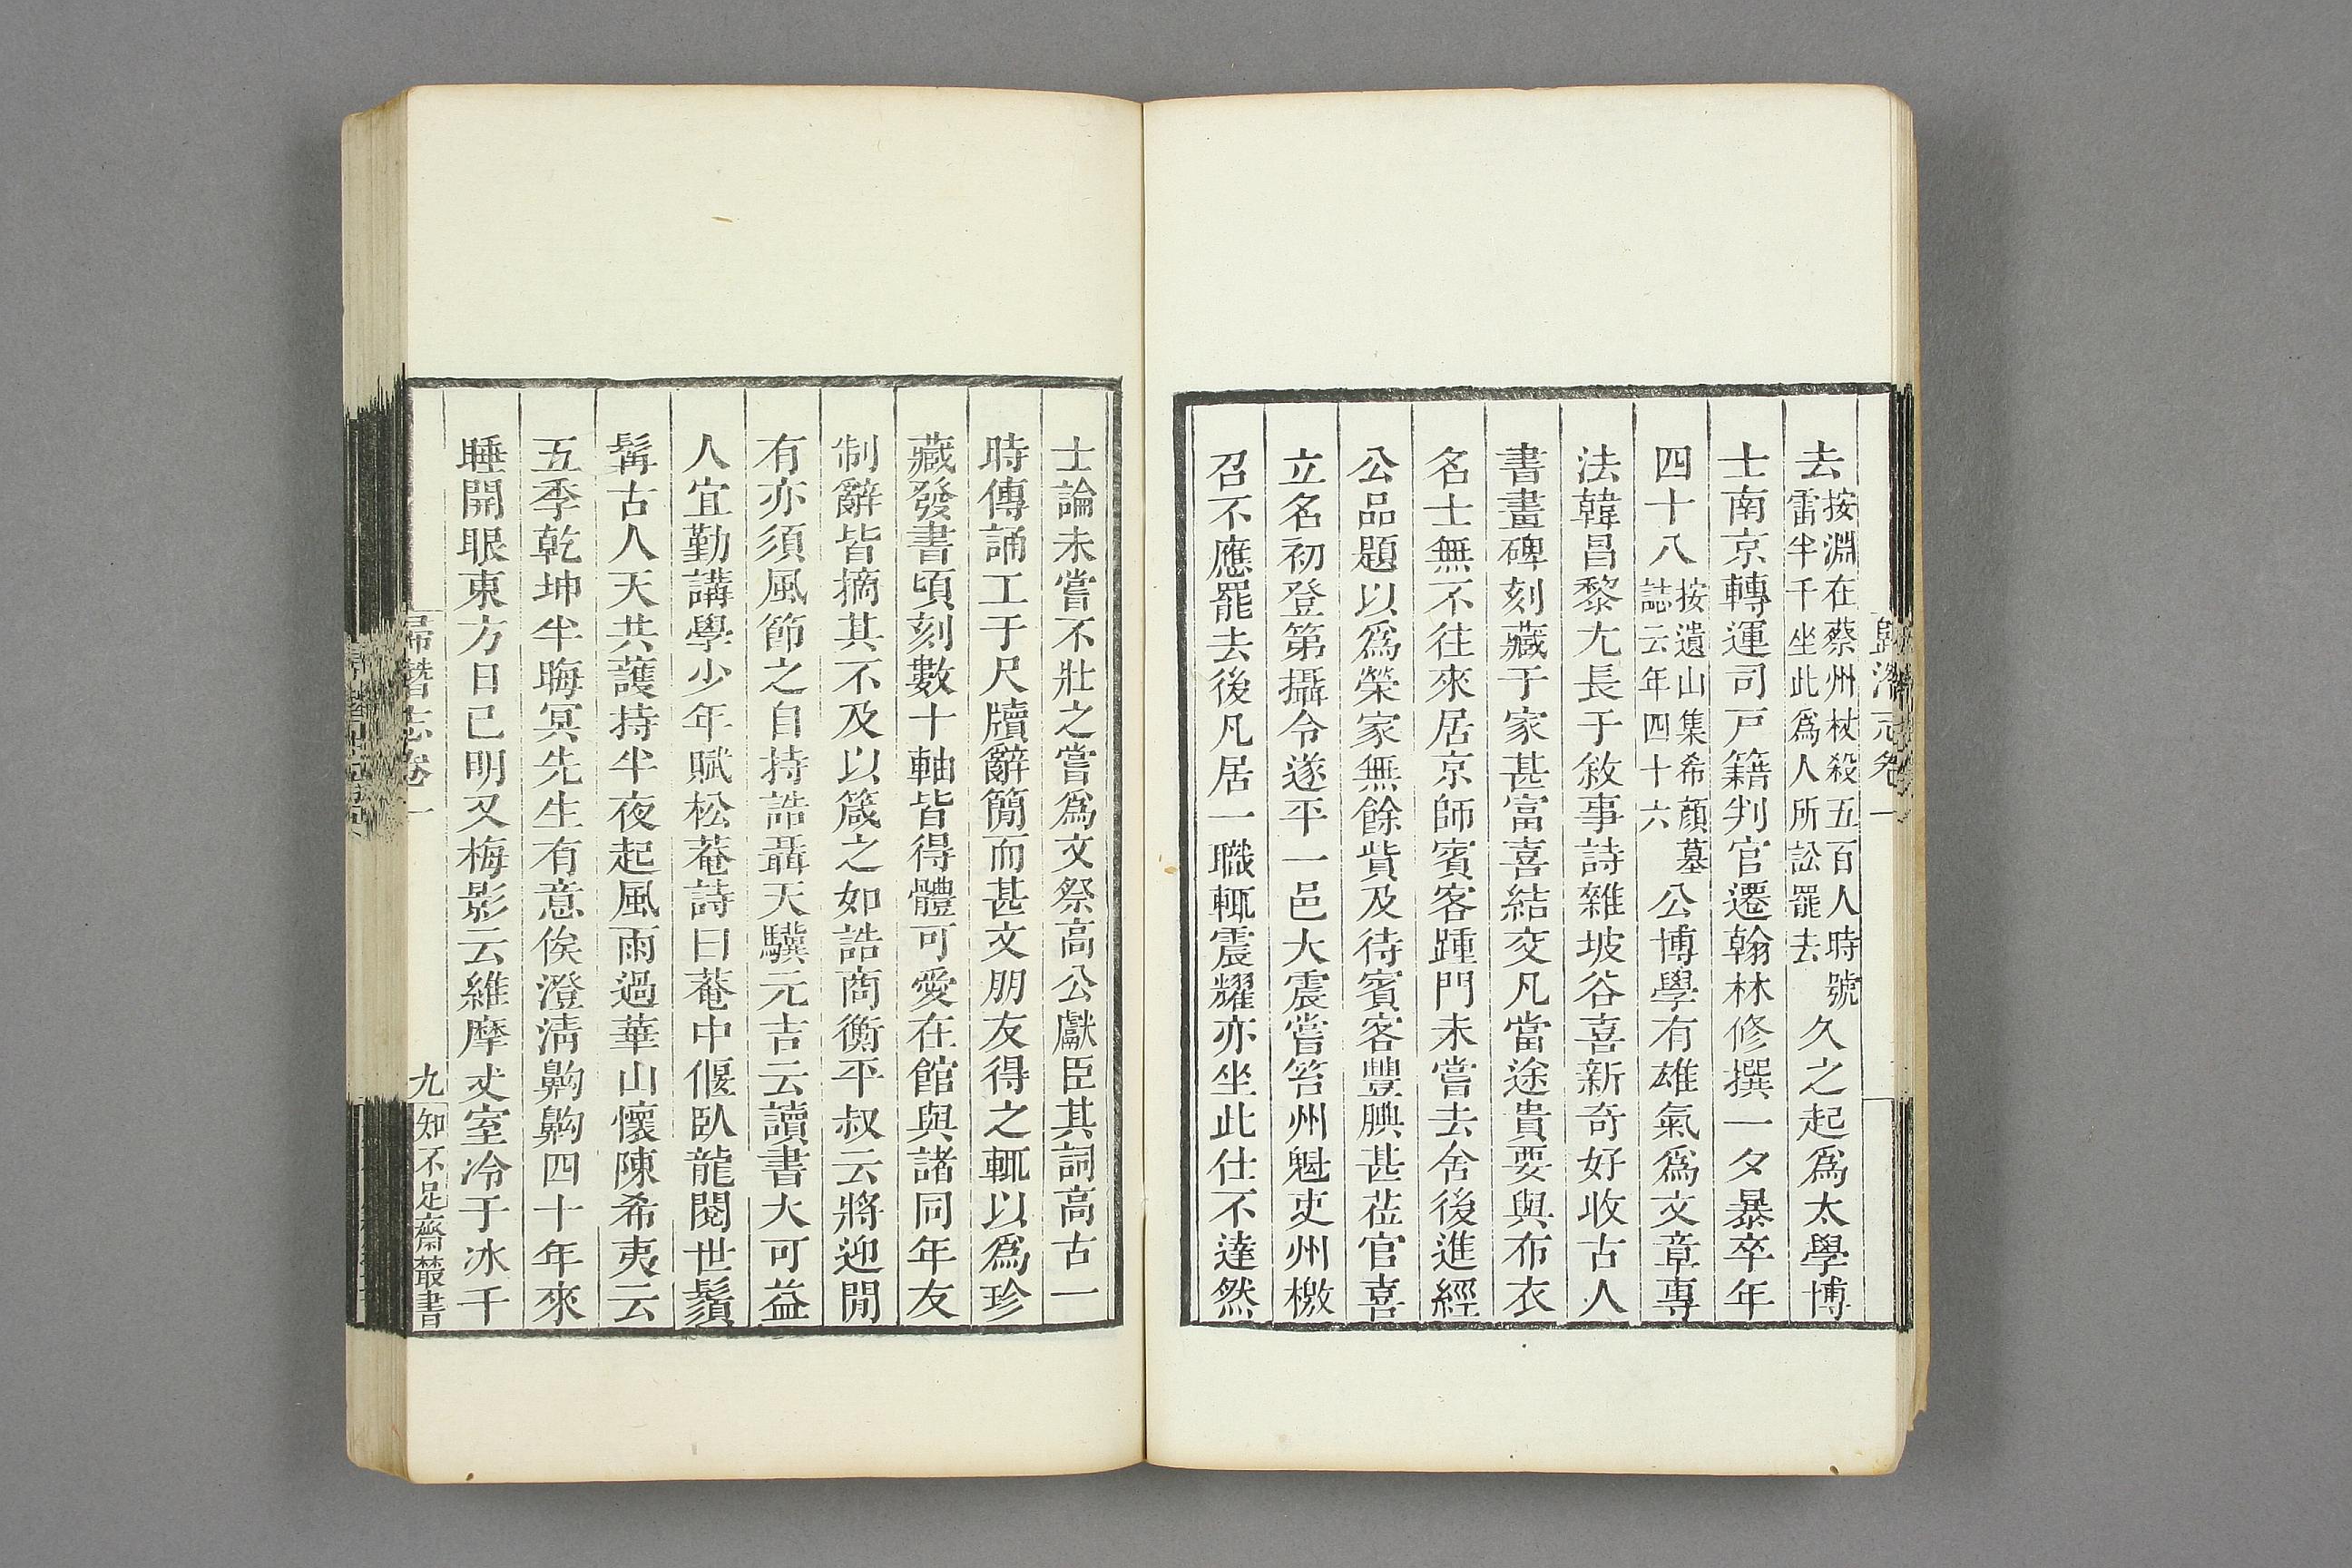 歸潛志卷一
去按淵在蔡州杖殺五百人時號雷半千坐此爲人所訟罷去久之起爲太學博
士南京轉運司戸籍判官遷翰林修撰一夕暴卒年
四十八按遺山集希顔墓誌云年四十六公博學有雄氣爲文章專
法韓昌黎尢長于敘事詩雜坡谷喜新奇好收古人
書畫碑刻藏于家甚富喜結交凡當途貴要與布衣
名士無不往來居京師賓客踵門未嘗去舍後進經
公品題以爲榮家無餘貲及待賓客豐腆甚莅官喜
立名初登第攝令遂平一邑大震嘗笞州魁吏州檄
召不應罷去後凡居一職輒震耀亦坐此仕不達然
士論未嘗不壯之嘗爲文祭高公獻臣其詞高古一
時傳誦工于尺牘辭簡而甚文朋友得之輒以爲珍
藏發書頃刻數十軸皆得體可愛在館與諸同年友
制辭皆摘其不及以箴之如誥商衡平叔云將迎閒
有亦須風節之自持誥聶天驥元吉云讀書大可益
人宜勤講學少年賦松菴詩曰菴中偃臥龍閱世鬚
髯古人天共護持半夜起風雨過華山懷陳希夷云
五季乾坤半晦冥先生有意俟澄淸鼾鼾四十年來
睡開眼東方日已明又梅影云維摩丈室冷于冰千
歸潛志卷一
九
知不足齋叢書